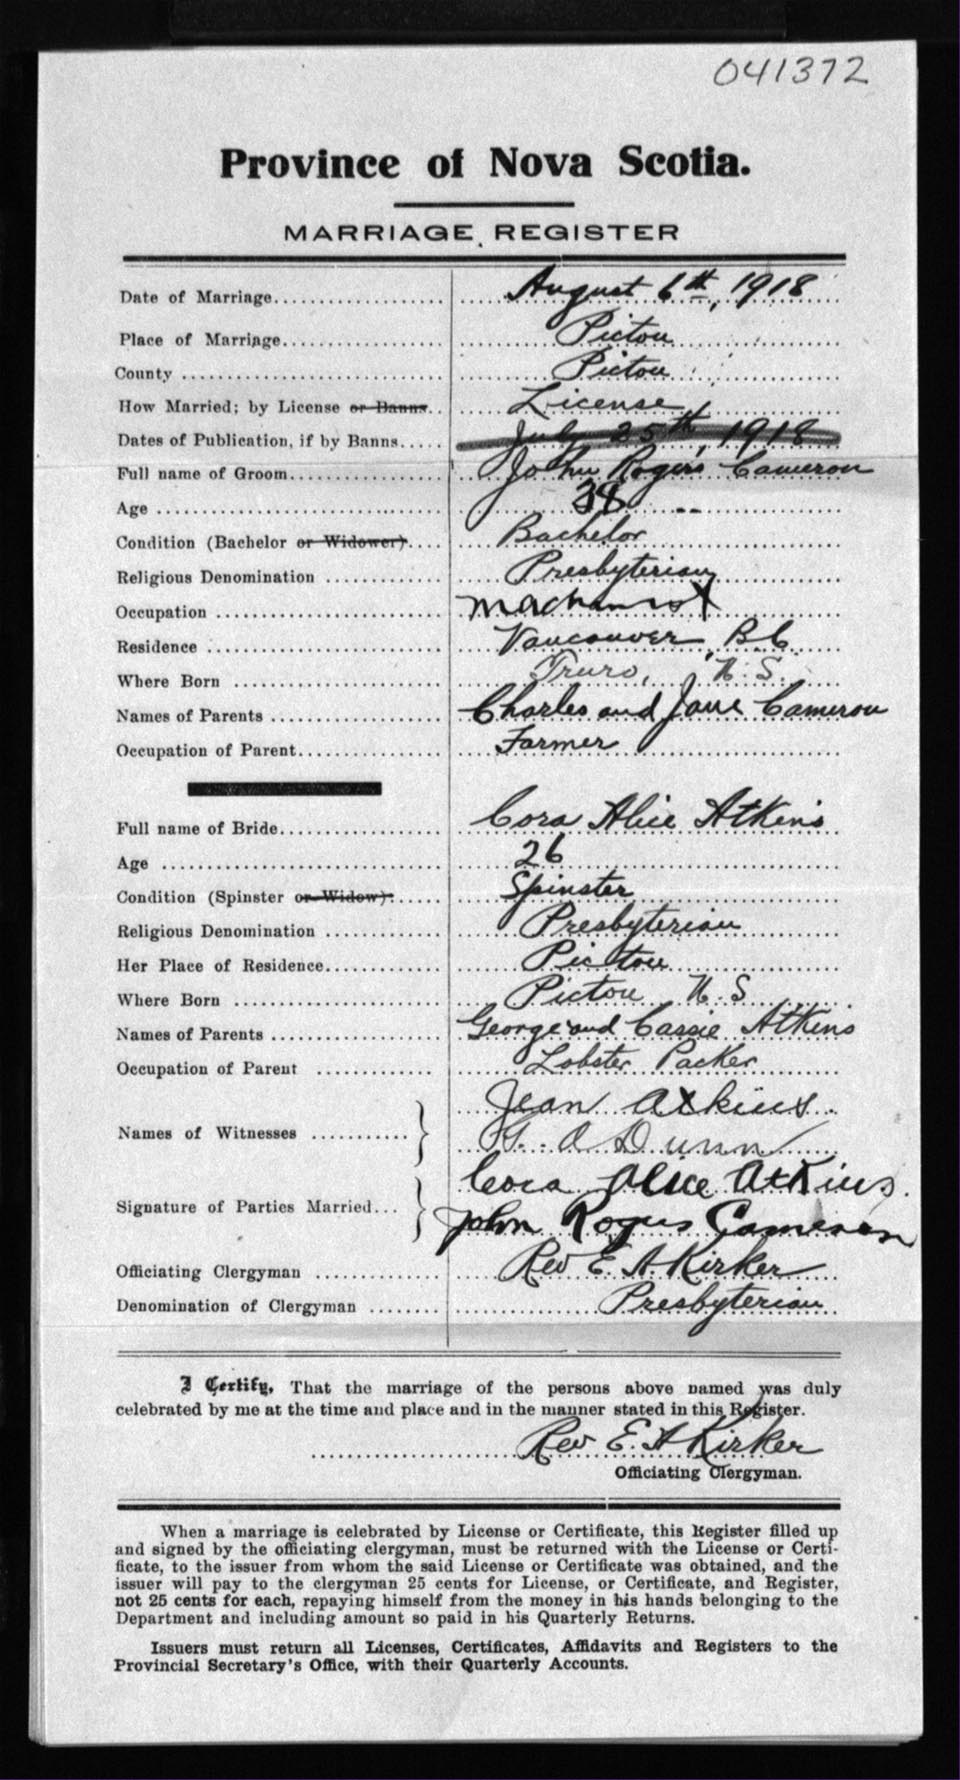 041372
Province of Nova Scotia.
MARRIAGE REGISTER
Date of Marriage.................... August 6th, 1918
Place of Marriage.................... Pictou
County .................... Pictou
How Married; by License or Banns.. License
Dates of Publication, if by Banns..... July 25th, 1918
Full name of Groom.................... John Rogers Cameron
Age .................... 38
Condition (Bachelor or Widower).... Bachelor
Religious Denomination .............. Presbyterian
Occupation .................... Machanist
Residence .................... Vancouver, B.C
Where Born .................... Truro, N.S.
Names of Parents .................... Charles and Jane Cameron
Occupation of Parent................. Farmer
Full name of Bride.................... Cora Alice Atkins
Age .................... 26
Condition (Spinster or Widow):...... Spinster
Religious Denomination .............. Presbyterian
Her Place of Residence.............. Pictou
Where Born .................... Pictou N.S
Names of Parents .................... George and Cassie Atkins
Occupation of Parent .............. Lobster Packer
Names of Witnesses ........... Jean Atkins.
G. A Dunn
Signature of Parties Married... Cora Alice Atkins.
John Rogers Cameron
Officiating Clergyman .............. Rev E. A Kirker
Denomination of Clergyman ........ Presbyterian
I Certify, That the marriage of the persons above named was duly
celebrated by me at the time and place and in the manner stated in this Register.
Rev E. A Kirker
Officiating Clergyman.
When a marriage is celebrated by License or Certificate, this Register filled up
and signed by the officiating clergyman, must be returned with the License or Certi-
ficate, to the issuer from whom the said License or Certificate was obtained, and the
issuer will pay to the clergyman 25 cents for License, or Certificate, and Register,
not 25 cents for each, repaying himself from the money in his hands belonging to the
Department and including amount so paid in his Quarterly Returns.
Issuers must return all Licenses, Certificates, Affidavits and Registers to the
Provincial Secretary's Office, with their Quarterly Accounts.